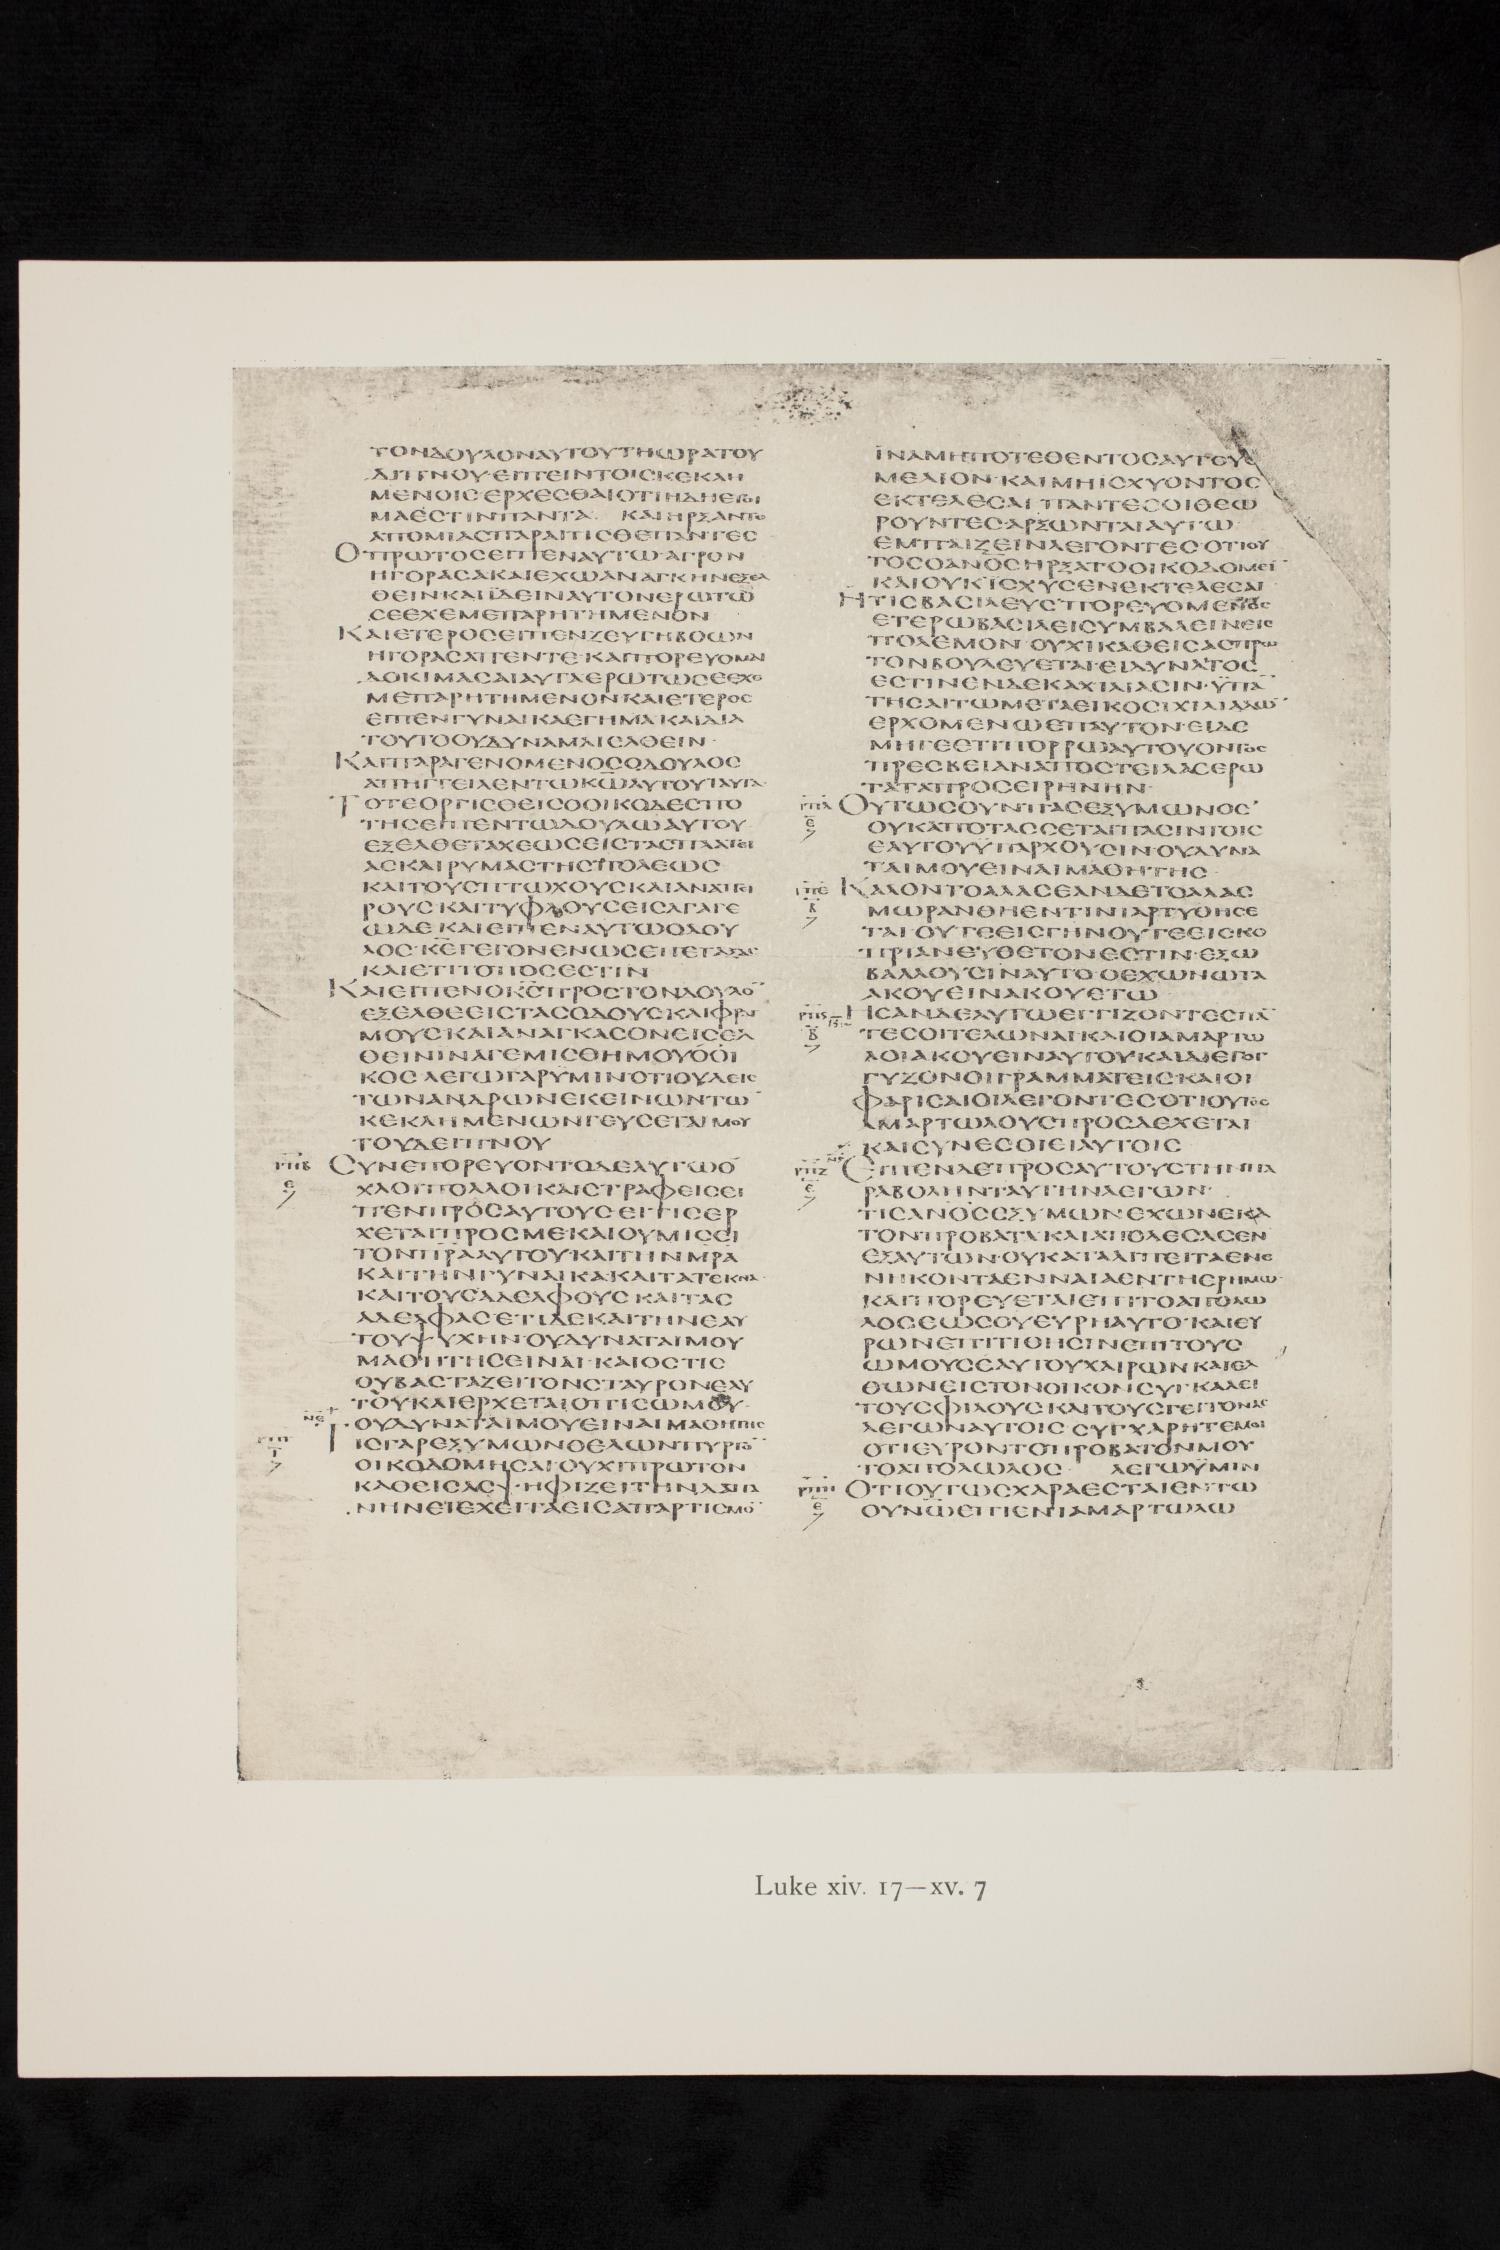 ΤΟΝΔΟΥΛΟΝΑΥΤΟΥΤΗΩΡΑΤΟΥ
ΔΙΠΝΟΥ·ΕΙΠΕΙΝΤΟΙΣΚΕΚΛΗ
ΜΕΝΟΙΣ·ΕΡΧΕΣΘΑΙΟΤΙΗΔΗΕΤΟΙ
ΜΑΕΣΤΙΝΠΑΝΤΑ· ΚΑΙΗΡΞΑΝΤΟ
ΑΠΟΜΙΑΣΠΑΡΑΙΤΙΣΘΕΠΑΝΤΕΣ
ΟΠΡΩΤΟΣΕΙΠΕΝΑΥΤΩ·ΑΓΡΟΝ
ΗΓΟΡΑΣΑΚΑΙΕΧΩΑΝΑΓΚΗΝΕΞΕΛ
ΘΕΙΝΚΑΙΪΔΕΙΝΑΥΤΟΝΕΡΩΤΩ
ΣΕΕΧΕΜΕΠΑΡΗΤΗΜΕΝΟΝ
ΚΑΙΕΤΕΡΟΣΕΙΠΕΝΖΕΥΓΗΒΟΩΝ
ΗΓΟΡΑΣΑΠΕΝΤΕ·ΚΑΙΠΟΡΕΥΟΜΑΙ
ΔΟΚΙΜΑΣΑΙΑΥΤΑΕΡΩΤΩΣΕΕΧΕ
ΜΕΠΑΡΗΤΗΜΕΝΟΝΚΑΙΕΤΕΡΟΣ
ΕΙΠΕΝΓΥΝΑΙΚΑΕΓΗΜΑΚΑΙΔΙΑ
ΤΟΥΤΟΟΥΔΥΝΑΜΑΙΕΛΘΕΙΝ·
ΚΑΙΠΑΡΑΓΕΝΟΜΕΝΟΣΟΔΟΥΛΟΣ
ΑΠΗΓΓΕΙΛΕΝΤΩΚΩ̅ΑΥΤΟΥΤΑΥΤΑ·
ΤΟΤΕΟΡΓΙΣΘΕΙΣΟΟΙΚΟΔΕΣΠΟ
ΤΗΣΕΙΠΕΝΤΩΔΟΥΛΩΑΥΤΟΥ·
ΕΞΕΛΘΕΤΑΧΕΩΣΕΙΣΤΑΣΠΛΑΤΕΙ
ΑΣΚΑΙΡΥΜΑΣΤΗΣΠΟΛΕΩΣ·
ΚΑΙΤΟΥΣΠΤΩΧΟΥΣΚΑΙΑΝΑΠΕΙ
ΡΟΥΣΚΑΙΤΥΦΛΟΥΣΕΙΣΑΓΑΓΕ
ΩΔΕΚΑΙΕΙΠΕΝΑΥΤΩΟΔΟΥ
ΛΟΣ·ΚΕ̅ΓΕΓΟΝΕΝΩΣΕΠΕΤΑΞΑΣ·
ΚΑΙΕΤΙΤΟΠΟΣΕΣΤΙΝ
ΚΑΙΕΙΠΕΝΟΚΣ̅ΠΡΟΣΤΟΝΔΟΥΛΟ̅
ΕΞΕΛΘΕΕΙΣΤΑΣΟΔΟΥΣΚΑΙΦΡΑΓ
ΜΟΥΣΚΑΙΑΝΑΓΚΑΣΟΝΕΙΣΕΛ
ΘΕΙΝΙΝΑΓΕΜΙΣΘΗΜΟΥΟΟΙ
ΚΟΣΛΕΓΩΓΑΡΥΜΙΝΟΤΙΟΥΔΕΙΣ
ΤΩΝΑΝΔΡΩΝΕΚΕΙΝΩΝΤΩ̅
ΚΕΚΛΗΜΕΝΩΝΓΕΥΣΕΤΑΙΜΟΥ
ΤΟΥΔΕΙΠΝΟΥ
ΡΠΒ ΣΥΝΕΠΟΡΕΥΟΝΤΟΔΕΑΥΤΩΟ
Ε ΧΛΟΙΠΟΛΛΟΙΚΑΙΣΤΡΑΦΕΙΣΕΙ
ΠΕΝΠΡΟΣΑΥΤΟΥΣ·ΕΙΤΙΣΕΡ
ΧΕΤΑΙΠΡΟΣΜΕΚΑΙΟΥΜΙΣΕΙ
ΤΟΝΠΡ̅ΑΑΥΤΟΥ·ΚΑΙΤΗΝΜΡ̅Α
ΚΑΙΤΗΝΓΥΝΑΙΚΑ·ΚΑΙΤΑΤΕΚΝΑ·
ΚΑΙΤΟΥΣΑΔΕΛΦΟΥΣΚΑΙΤΑΣ
ΑΔΕΛΦΑΣΕΤΙΔΕΚΑΙΤΗΝΕΑΥ
ΤΟΥΨΥΧΗΝ·ΟΥΔΥΝΑΤΑΙΜΟΥ
ΜΑΘΗΤΗΣΕΙΝΑΙ·ΚΑΙΟΣΤΙΣ
ΟΥΒΑΣΤΑΖΕΙΤΟΝΣΤΑΥΡΟΝΕΑΥ
ΤΟΥΚΑΙΕΡΧΕΤΑΙΟΠΙΣΩΜΟΥ·
ΟΥΔΥΝΑΤΑΙΜΟΥΕΙΝΑΙΜΑΘΗΤΗΣ
ΤΙΣΓΑΡΕΞΥΜΩΝΘΕΛΩΝΠΥΡΓΟ̅
ΟΙΚΟΔΟΜΗΣΑΙ·ΟΥΧΙΠΡΩΤΟΝ
ΚΑΘΕΙΣΑΣΨΗΦΙΖΕΙΤΗΝΔΑΠΑ
ΝΗΝΕΙΕΧΕΙΤΑΕΙΣΑΠΑΡΤΙΣΜΟ̅
ΪΝΑΜΗΠΟΤΕΘΕΝΤΟΣΑΥΤΟΥΘΕ
ΜΕΛΙΟΝ·ΚΑΙΜΗΙΣΧΥΟΝΤΟΣ
ΕΚΤΕΛΕΣΑΙΠΑΝΤΕΣΟΙΘΕΩ
ΡΟΥΝΤΕΣΑΡΞΩΝΤΑΙΑΥΤΩ
ΕΜΠΑΙΖΕΙΝΛΕΓΟΝΤΕΣ·ΟΤΙΟΥ
ΤΟΣΟΑΝΟ̅ΣΗΡΞΑΤΟΟΙΚΟΔΟΜΕΙ̅
ΚΑΙΟΥΚΪΣΧΥΣΕΝΕΚΤΕΛΕΣΑΙ
ΗΤΙΣΒΑΣΙΛΕΥΣΠΟΡΕΥΟΜΕΝΟΣ
ΕΤΕΡΩΒΑΣΙΛΕΙΣΥΜΒΑΛΕΙΝΕΙΣ
ΠΟΛΕΜΟΝ·ΟΥΧΙΚΑΘΕΙΣΑΣΠΡΩ
ΤΟΝΒΟΥΛΕΥΕΤΑΙ·ΕΙΔΥΝΑΤΟΣ
ΕΣΤΙΝΕΝΔΕΚΑΧΙΛΙΑΣΙΝ·ΫΠΑ̅
ΤΗΣΑΙΤΩΜΕΤΑΕΙΚΟΣΙΧΙΛΙΑΔΩ̅
ΕΡΧΟΜΕΝΩΕΠΑΥΤΟΝ·ΕΙΔΕ
ΜΗΓΕΕΤΙΠΟΡΡΩΑΥΤΟΥΟΝΤΟΣ
ΠΡΕΣΒΕΙΑΝΑΠΟΣΤΕΙΛΑΣΕΡΩ
ΤΑΤΑΠΡΟΣΕΙΡΗΝΗΝ·
ΡΠΔ ΟΥΤΩΣΟΥΝΠΑΣΕΞΥΜΩΝΟΣ
Ε ΟΥΚΑΠΟΤΑΣΣΕΤΑΙΠΑΣΙΝΤΟΙΣ
ΕΑΥΤΟΥΫΠΑΡΧΟΥΣΙΝ·ΟΥΔΥΝΑ
ΤΑΙΜΟΥΕΙΝΑΙΜΑΘΗΤΗΣ·
ΡΠΕ ΚΑΛΟΝΤΟΑΛΑΣΕΑΝΔΕΤΟΑΛΑΣ
Β ΜΩΡΑΝΘΗΕΝΤΙΝΙΑΡΤΥΘΗΣΕ
ΤΑΙ·ΟΥΤΕΕΙΣΓΗΝΟΥΤΕΕΙΣΚΟ
ΠΡΙΑΝΕΥΘΕΤΟΝΕΣΤΙΝ·ΕΞΩ
ΒΑΛΛΟΥΣΙΝΑΥΤΟ·ΟΕΧΩΝΩΤΑ
ΑΚΟΥΕΙΝΑΚΟΥΕΤΩ
ΡΠϚ ΗΣΑΝΔΕΑΥΤΩΕΓΓΙΖΟΝΤΕΣΠΑ̅
Β ΤΕΣΟΙΤΕΛΩΝΑΙΚΑΙΟΙΑΜΑΡΤΩ
ΛΟΙΑΚΟΥΕΙΝΑΥΤΟΥ·ΚΑΙΔΙΕΓΟΓ
ΓΥΖΟΝΟΙΓΡΑΜΜΑΤΕΙΣΚΑΙΟΙ
ΦΑΡΙΣΑΙΟΙΛΕΓΟΝΤΕΣΟΤΙΟΥΤΟΣ
ΑΜΑΡΤΩΛΟΥΣΠΡΟΣΔΕΧΕΤΑΙ
ΚΑΙΣΥΝΕΣΘΙΕΙΑΥΤΟΙΣ
ΡΠΖ ΕΙΠΕΝΔΕΠΡΟΣΑΥΤΟΥΣΤΗΝΠΑ
Ε ΡΑΒΟΛΗΝΤΑΥΤΗΝΛΕΓΩΝ·
ΤΙΣΑΝΟ̅ΣΕΞΥΜΩΝΕΧΩΝΕΚΑ
ΤΟΝΠΡΟΒΑΤΑ·ΚΑΙΑΠΟΛΕΣΑΣΕΝ
ΕΞΑΥΤΩΝ·ΟΥΚΑΤΑΛΙΠΕΙΤΑΕΝΕ
ΝΗΚΟΝΤΑΕΝΝΑΙΑΕΝΤΗΕΡΗΜΩ·
ΚΑΙΠΟΡΕΥΕΤΑΙΕΠΙΤΟΑΠΟΛΩ
ΛΟΣΕΩΣΟΥΕΥΡΗΑΥΤΟ·ΚΑΙΕΥ
ΡΩΝΕΠΙΤΙΘΗΣΙΝΕΠΙΤΟΥΣ
ΩΜΟΥΣΕΑΥΤΟΥΧΑΙΡΩΝΚΑΙΕΛ
ΘΩΝΕΙΣΤΟΝΟΙΚΟΝΣΥΓΚΑΛΕΙ
ΤΟΥΣΦΙΛΟΥΣΚΑΙΤΟΥΣΓΕΙΤΟΝΑΣ
ΛΕΓΩΝΑΥΤΟΙΣ·ΣΥΓΧΑΡΗΤΕΜΟΙ
ΟΤΙΕΥΡΟΝΤΟΠΡΟΒΑΤΟΝΜΟΥ
ΤΟΑΠΟΛΩΛΟΣ· ΛΕΓΩΫΜΙΝ
ΡΠΗ ΟΤΙΟΥΤΩΣΧΑΡΑΕΣΤΑΙΕΝΤΩ
Ε ΟΥΝΩ̅ΕΠΙΕΝΙΑΜΑΡΤΩΛΩ
Luke xiv. 17—xv. 7